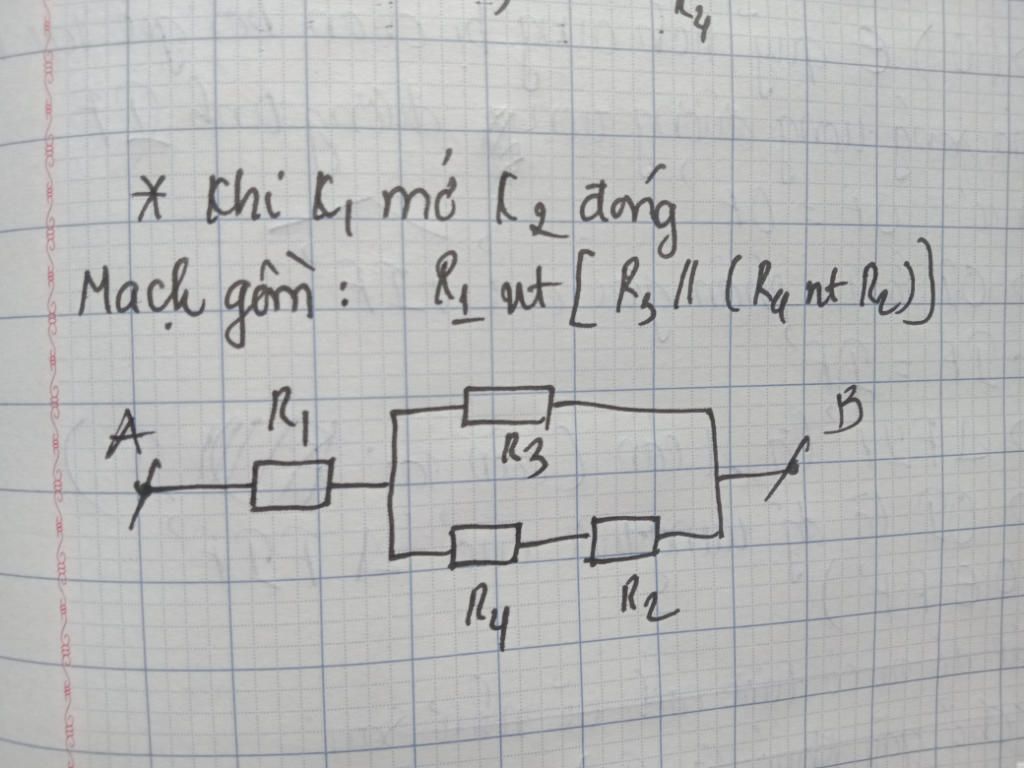 R4
* Khi K1 mở K2 đóng
Mạch gồm: R1 nt [R3 // (R4 nt R2)]
A R1 R3 B
R4 R2